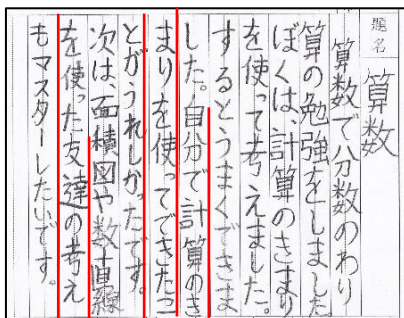 題名 算数
算数で分数のわり
算の勉強をしました。
ぼくは、計算のきまり
を使って考えました。
するとうまくできま
した。自分で計算のき
まりを使ってできたこ
とがうれしかったです。
次は、面積図や数直線
を使った友達の考え
もマスターしたいです。